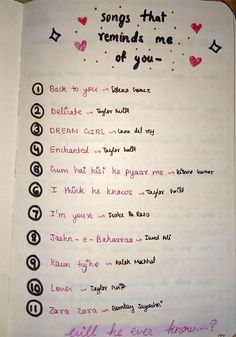 songs that
reminds me
of you-
1 Back to you ~ Selena Gomez
2 Delicate ~ Taylor Swift
3 DREAM GIRL ~ Lana del rey
4 Enchanted ~ Taylor Swift
5 Gum hai kisi ke pyaar me ~ Kishore Kumar
6 I think he knows ~ Taylor Swift
7 I'm yours ~ Isabel
8 Jashn-e-Bahaaraa ~ Javed Ali
9 Kaun tujhe ~ Palak Muchhal
10 Lover ~ Taylor Swift
11 Zara Zara ~ Bombay Jayashri
will he ever know....?